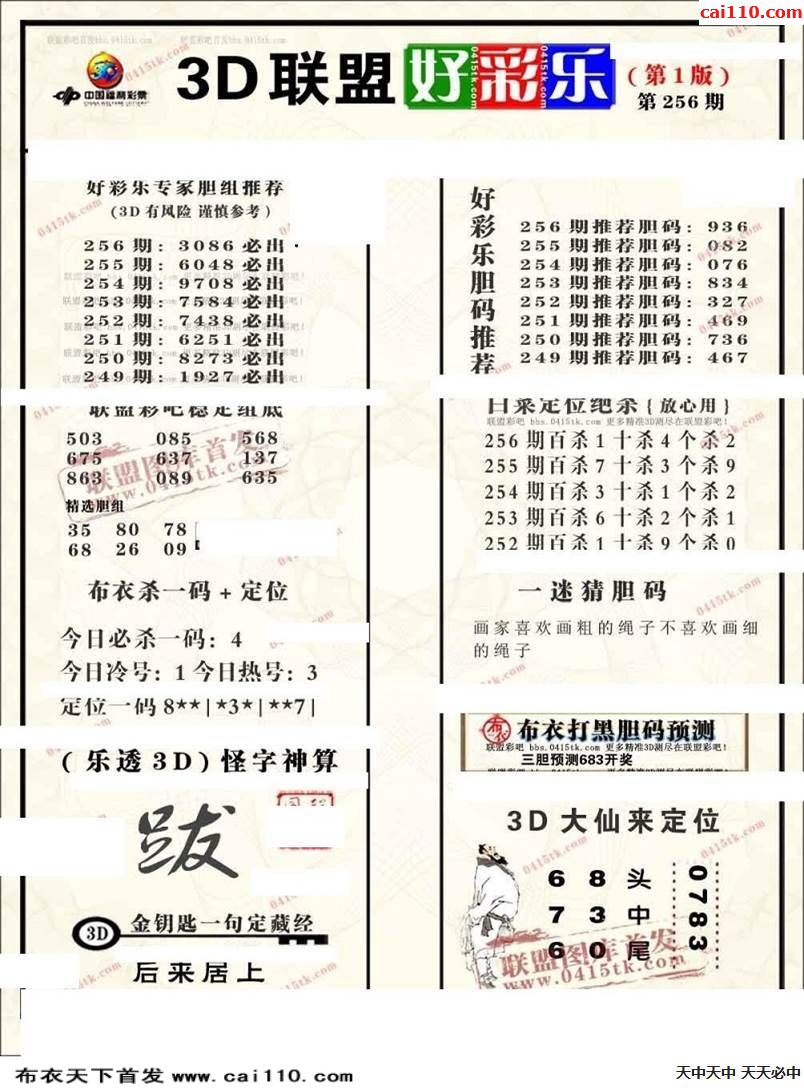 cai110.com
联盟彩吧首发bbs.0415tk.com 联盟彩吧首发bbs.0415tk.com
中国福利彩票
CHINA WELFARE LOTTERY
3D联盟好彩乐
(第1版)
第256期
好彩乐专家胆组推荐
(3D有风险 谨慎参考)
256期:3086必出
255期:6048必出
254期:9708必出
253期:7584必出
252期:7438必出
251期:6251必出
250期:8273必出
249期:1927必出
好彩乐胆码推荐
256期推荐胆码:936
255期推荐胆码:082
254期推荐胆码:076
253期推荐胆码:834
252期推荐胆码:327
251期推荐胆码:469
250期推荐胆码:736
249期推荐胆码:467
联盟彩吧稳定组底
503 085 568
675 637 137
863 089 635
精选胆组
35 80 78
68 26 09
联盟图库首发
www.0415tk.com
白菜定位绝杀{放心用}
联盟彩吧 bbs.0415tk.com 更多精准3D测尽在联盟彩吧!
256期百杀1十杀4个杀2
255期百杀7十杀3个杀9
254期百杀3十杀1个杀2
253期百杀6十杀2个杀1
252期百杀1十杀9个杀0
布衣杀一码+定位
今日必杀一码:4
今日冷号:1今日热号:3
定位一码8**|*3*|**7|
一迷猜胆码
画家喜欢画粗的绳子不喜欢画细
的绳子
(乐透3D)怪字神算
跋
布衣
布衣打黑胆码预测
联盟彩吧 bbs.0415tk.com 更多精准3D测尽在联盟彩吧!
三胆预测683开奖
3D
金钥匙一句定藏经
后来居上
3D大仙来定位
6 8 头
7 3 中
6 0 尾
0783
联盟图库首发
www.0415tk.com
布衣天下首发www.cai110.com
天中天中 天天必中